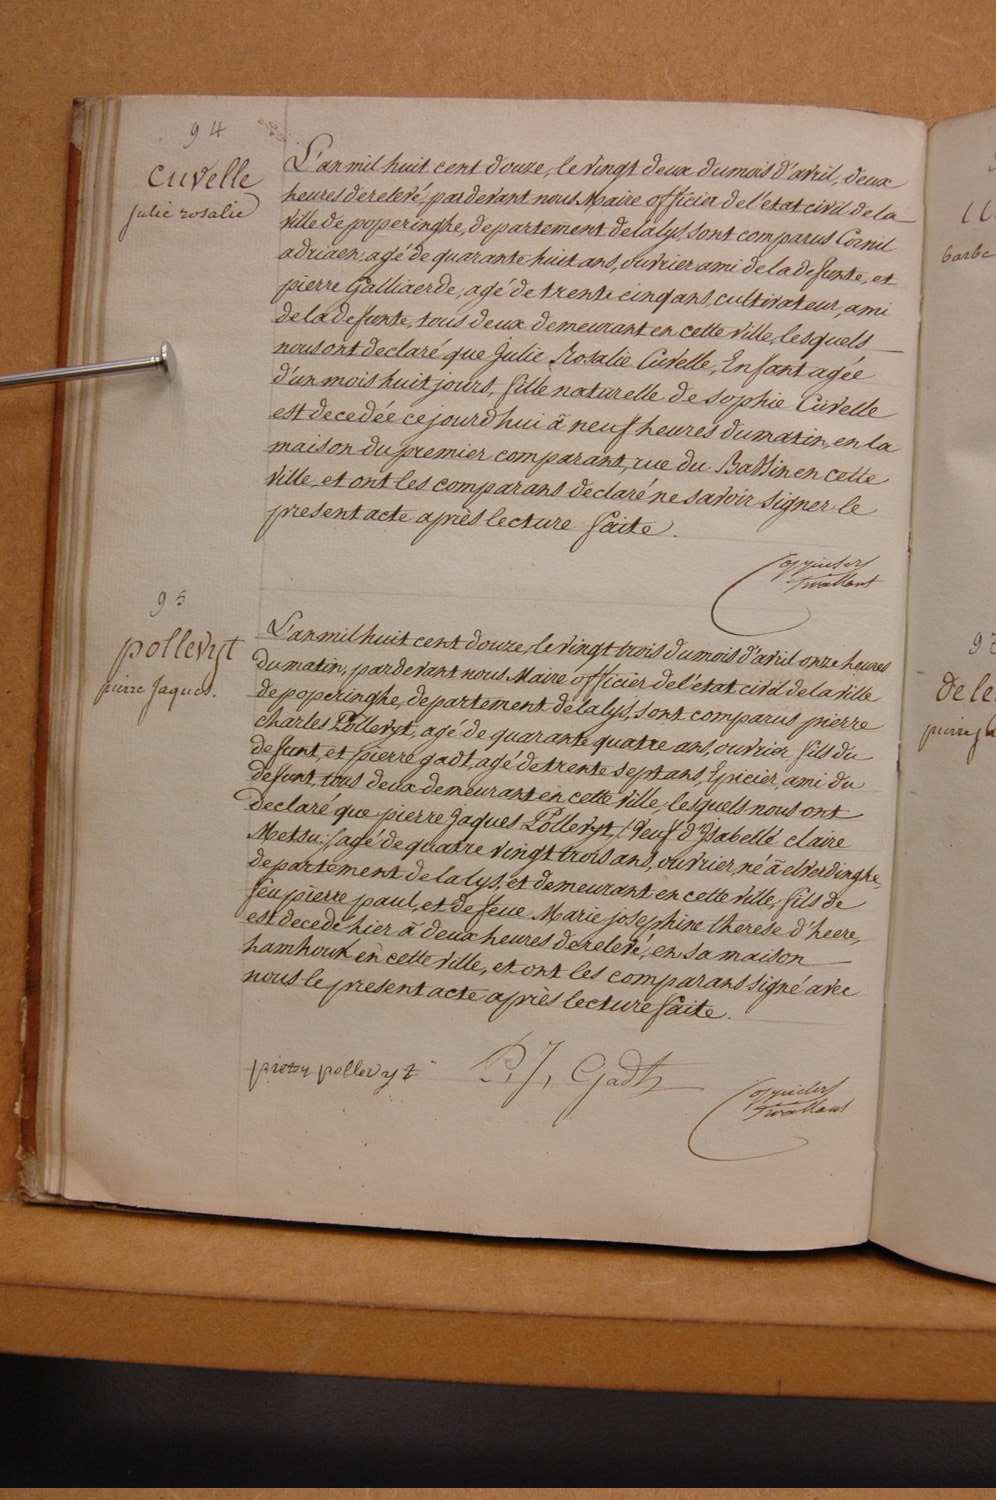 94
Cuvelle
julie rosalie
L'an mil huit cent douze, le vingt deux du mois d'avril, deux
heures de relevé, pardevant nous Maire officier de l'etat civil de la
ville de poperinghe, departement de la lys, sont comparus Cornil
adriaen, agé de quarante huit ans, ouvrier ami de la defunte, et
pierre Galliaerde, agé de trente cinq ans, cultivateur, ami
de la defunte, tous deux demeurant en cette ville, lesquels
nous ont declaré que Julie Rosalie Cuvelle, Enfant agée
d'un mois huit jours, fille naturelle de sophie Cuvelle
est decedée ce jourd'hui à neuf heures du matin, en la
maison du premier comparant, rue du Bassin en cette
ville, et ont les comparans declaré ne savoir signer le
present acte après lecture faite.
95
pollevyt
pierre Jaques.
L'an mil huit cent douze, le vingt trois du mois d'avril onze heures
du matin, pardevant nous Maire officier de l'etat civil de la ville
de poperinghe, departement de la lys, sont comparus pierre
charles Pollevyt, agé de quarante quatre ans, ouvrier, fils du
defunt, et pierre gadt, agé de trente sept ans, Epicier, ami du
defunt, tous deux demeurant en cette ville, lesquels nous ont
declaré que pierre Jaques Pollevyt /:Veuf d'Ysabelle claire
Metsu:/ agé de quatre vingt trois ans, ouvrier, né à elverdinghe,
departement de la lys, et demeurant en cette ville, fils de
feu pierre paul, et de feue Marie josephine therese d'heere,
est decedé hier à deux heures de relevé, en sa maison
hamhouk en cette ville, et ont les comparans signé avec
nous le present acte après lecture faite.
pollevyt P. J. Gadt
barbe
de le